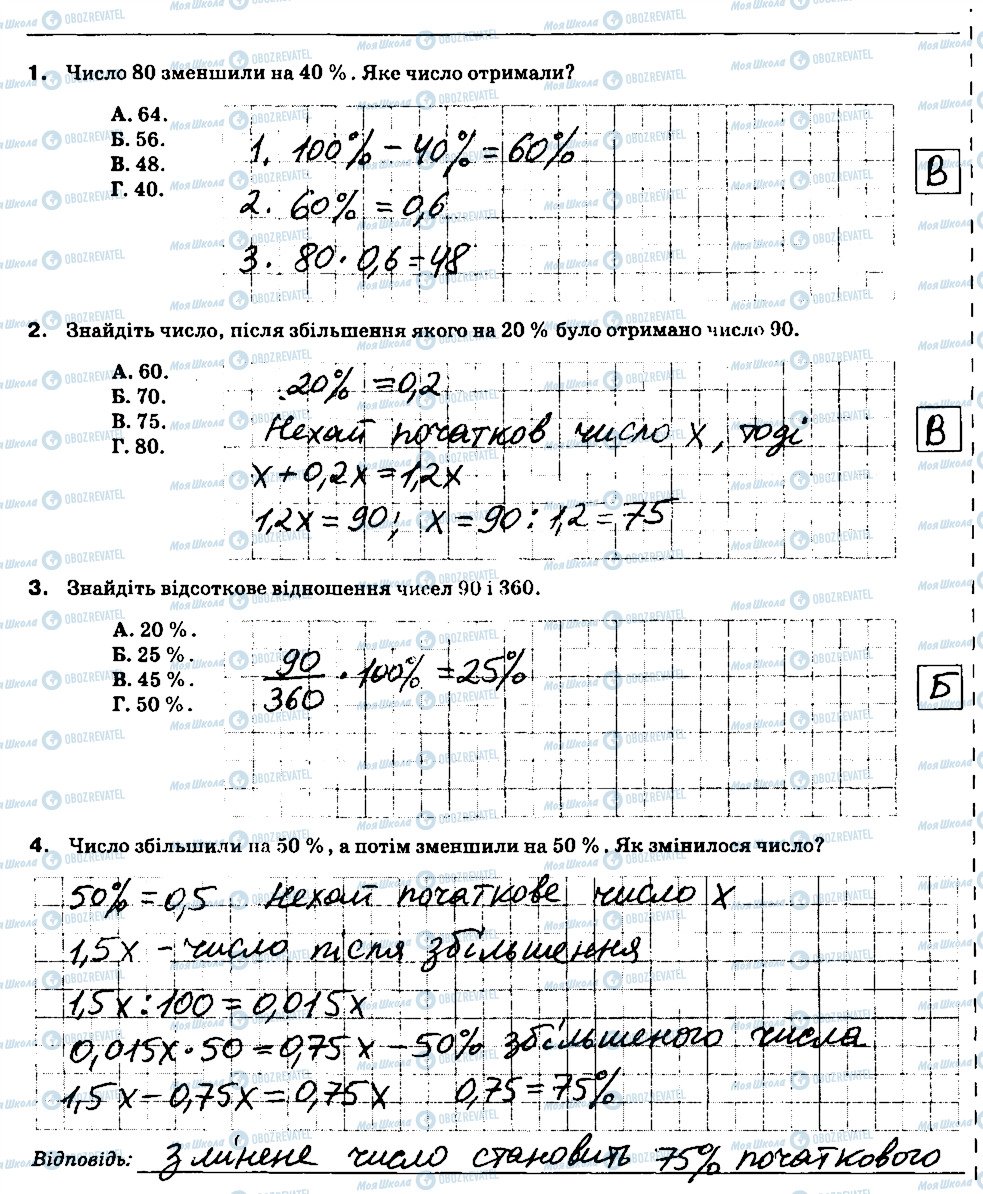 1. Число 80 зменшили на 40 %. Яке число отримали?
А. 64.
Б. 56.
В. 48.
Г. 40.
1. 100% − 40% = 60%
2. 60% = 0,6
3. 80 · 0,6 = 48
В
2. Знайдіть число, після збільшення якого на 20 % було отримано число 90.
А. 60.
Б. 70.
В. 75.
Г. 80.
20% = 0,2
Нехай початков число x, тоді
x + 0,2x = 1,2x
1,2x = 90; x = 90 : 1,2 = 75
В
3. Знайдіть відсоткове відношення чисел 90 і 360.
А. 20 %.
Б. 25 %.
В. 45 %.
Г. 50 %.
90/360 · 100% = 25%
Б
4. Число збільшили на 50 %, а потім зменшили на 50 %. Як змінилося число?
50% = 0,5 Нехай початкове число x
1,5x − число після збільшення
1,5x : 100 = 0,015x
0,015x · 50 = 0,75x − 50% збільшеного числа
1,5x − 0,75x = 0,75x 0,75 = 75%
Відповідь: Змінене число становить 75% початкового
Моя Школа OBOZREVATEL